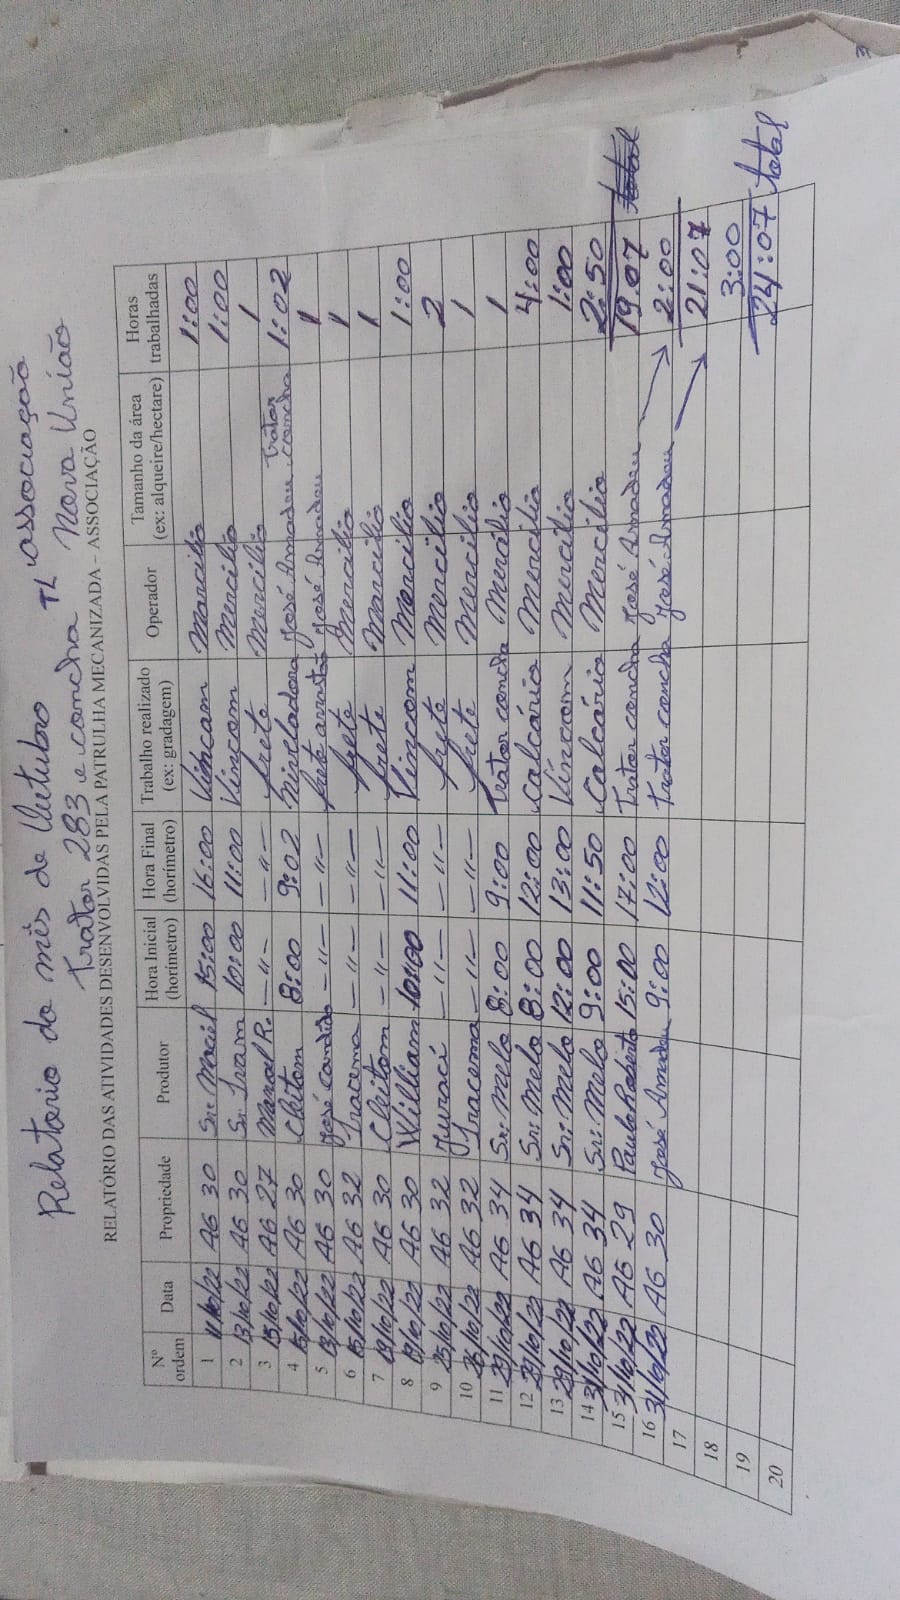 Relatorio do mês de Outubro
Trator 283 e concha TL associação
Nova União
RELATÓRIO DAS ATIVIDADES DESENVOLVIDAS PELA PATRULHA MECANIZADA – ASSOCIAÇÃO
Nº ordem Data Propriedade Produtor Hora Inicial (horímetro) Hora Final (horímetro) Trabalho realizado (ex: gradagem) Operador Tamanho da área (ex: alqueire/hectare) Horas trabalhadas
1 11/10/22 A6 30 Snr. Maciel 15:00 16:00 Vincam Marcilio 1:00
2 13/10/22 A6 30 Sr. Ivam 10:00 11:00 Vincom Mercilio 1:00
3 15/10/22 A6 27 Manoel R. —"— —"— frete Mercilio 1
4 15/10/22 A6 30 Cleitom 8:00 9:02 Niveladora José Amadeu Trator concha 1:02
5 19/10/22 A6 30 José Candido —"— —"— frete José Amadeu 1
6 15/10/22 A6 32 Iracema —"— —"— frete Mercilio 1
7 19/10/22 A6 30 Cleitom —"— —"— frete Marcilio 1
8 19/10/22 A6 30 William 10:00 11:00 Vincom Marcilio 1:00
9 25/10/22 A6 32 Juraci —"— —"— frete Mercilio 2
10 26/10/22 A6 32 Iracema —"— —"— frete Mercilio 1
11 29/10/22 A6 34 Sr: Melo 8:00 9:00 Trator concha Mercilio 1
12 29/10/22 A6 34 Snr: Melo 8:00 12:00 Calcário Mercilio 4:00
13 29/10/22 A6 34 Sn: Melo 12:00 13:00 Víncom Mercilio 1:00
14 31/10/22 A6 34 Snr: Melo 9:00 11:50 Calcário Mercilio 2:50
15 31/10/22 A6 29 Paulo Roberto 15:00 17:00 Trator concha José Amadeu 19 07 total
16 31/10/22 A6 30 José Amadeu 9:00 12:00 Trator concha José Amadeu 2:00
17 21:07
18
19 3:00
20 24:07 total